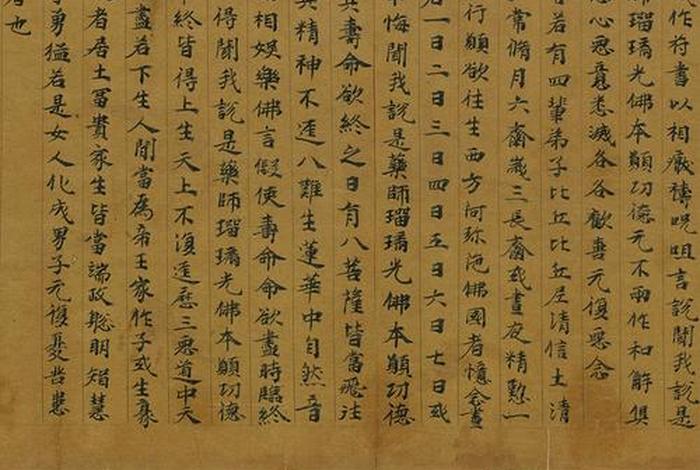 作苻書以相癥禱呪咀言說聞我說是
師瑠璃光佛本願功德无不兩作和解俱
慈心惡意悉滅各各歡喜无復惡念
若有四輩弟子比丘比丘尼清信士清
常脩月六齋歲三長齋或晝夜精懃一
行願欲往生西方阿弥陁佛國者憶念晝
若一日二日三日四日五日六日七日或
中悔聞我說是藥師瑠璃光佛本願功德
其壽命欲終之日有八菩薩皆當飛往
其精神不逕八難生蓮華中自然音
相娛樂佛言假使壽命命欲盡時臨終
得聞我說是藥師瑠璃光佛本願功德
終皆得上生天上不復逕歷三惡道中天
盡若下生人間當為帝王家作子或生豪
者居士冨貴家生皆當端政聦明智慧
勇猛若是女人化成男子无復憂苦患
者也